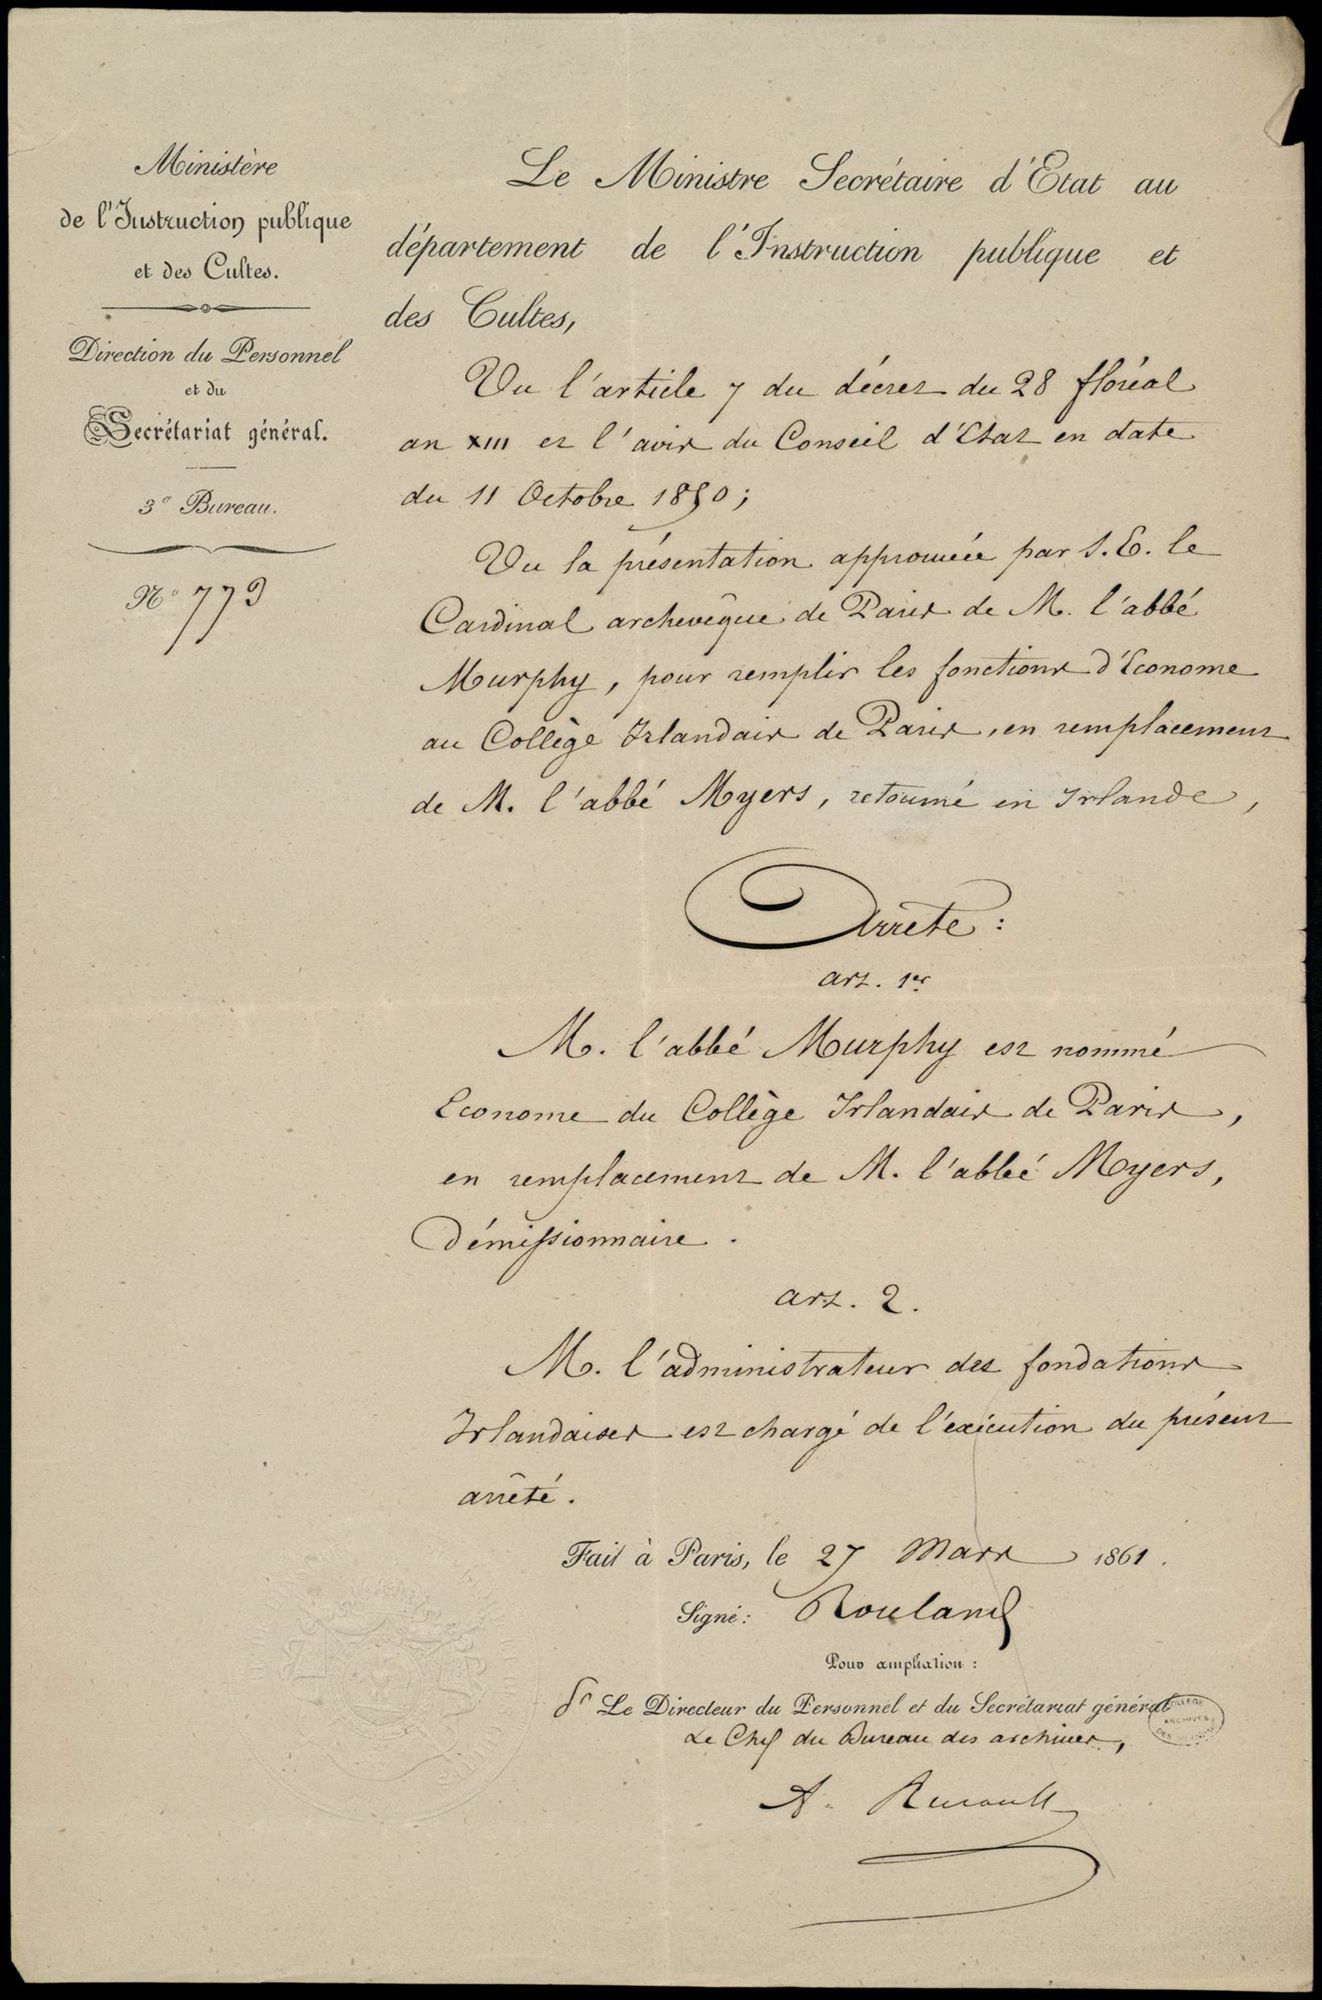 Ministère
de l'Instruction publique
et des Cultes.
Direction du Personnel
et du
Secrétariat général.
3e Bureau.
No 779
Le Ministre Secrétaire d'Etat au
département de l'Instruction publique et
des Cultes,
Vu l'article 7 du décret du 28 floréal
an XIII et l'avis du Conseil d'Etat en date
du 11 Octobre 1850;
Vu la présentation approuvée par S. E. le
Cardinal archevêque de Paris de M. l'abbé
Murphy, pour remplir les fonctions d'Econome
au Collège Irlandais de Paris, en remplacement
de M. l'abbé Myers, retourné en Irlande,
Arrête :
art. 1er
M. l'abbé Murphy est nommé
Econome du Collège Irlandais de Paris,
en remplacement de M. l'abbé Myers,
Démissionnaire.
art. 2.
M. l'administrateur des fondations
Irlandaises est chargé de l'exécution du présent
arrêté.
Fait à Paris, le 27 Mars 1861.
Signé: Rouland
Pour ampliation :
Le Directeur du Personnel et du Secrétariat général
Le Chef du Bureau des archives,
COLLEGE
ARCHIVES
DES
A.